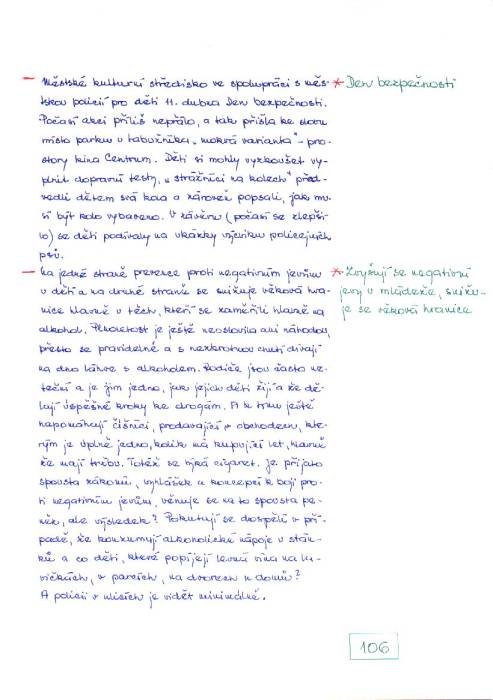 – Městské kulturní středisko ve spolupráci s měs-
tskou policií pro děti 11. dubna Den bezpečnosti.
Počasí akci příliš nepřálo, a tak přišla ke slovu
místo parku u tabužníka "mokrá varianta" - pro-
story kina Centrum. Děti si mohly vyzkoušet vy-
plnit dopravní testy, "strážníci na kolech" před-
vedli dětem svá kola a zároveň popsali, jak mu-
sí být kolo vybaveno. V závěru (počasí se zlepši-
lo) se děti podívaly na ukázky výcviku policejných
psů.
* Den bezpečnosti
– Na jedné straně prevence proti negativním jevům
u dětí a na druhé straně se snižuje věková hra-
nice hlavně u těch, kteří se zaměřili hlavně na
alkohol. Plnoletost je ještě neoslovila ani náhodou,
přesto se pravidelně a s nezkrotnou chutí dívají
na dno láhve s alkoholem. Rodiče jsou často ne-
teční a je jim jedno, jak jejich děti žijí a že dě-
lají úspěšné kroky ke drogám. A k tomu ještě
napomáhají číšníci, prodavající v obchodech, kte-
rým je úplně jedno, kolik má kupující let, hlavně
že mají tržbu. Totéž se týká cigaret. Je přijato
spousta zákonů, vyhlášek a koncepcí k boji pro-
ti negativním jevům, věnuje se na to spousta pe-
něz, ale výsledek? Pokutují se dospělí v pří-
padě, že konzumují alkoholické nápoje u stán-
ků a co děti, které popíjejí levná vína na la-
vičkách, v parcích, na dvorech u domů?
A policii v ulicích je vidět minimálně.
* Zvyšují se negativní
jevy u mládeže, snižu-
je se věková hranice
106